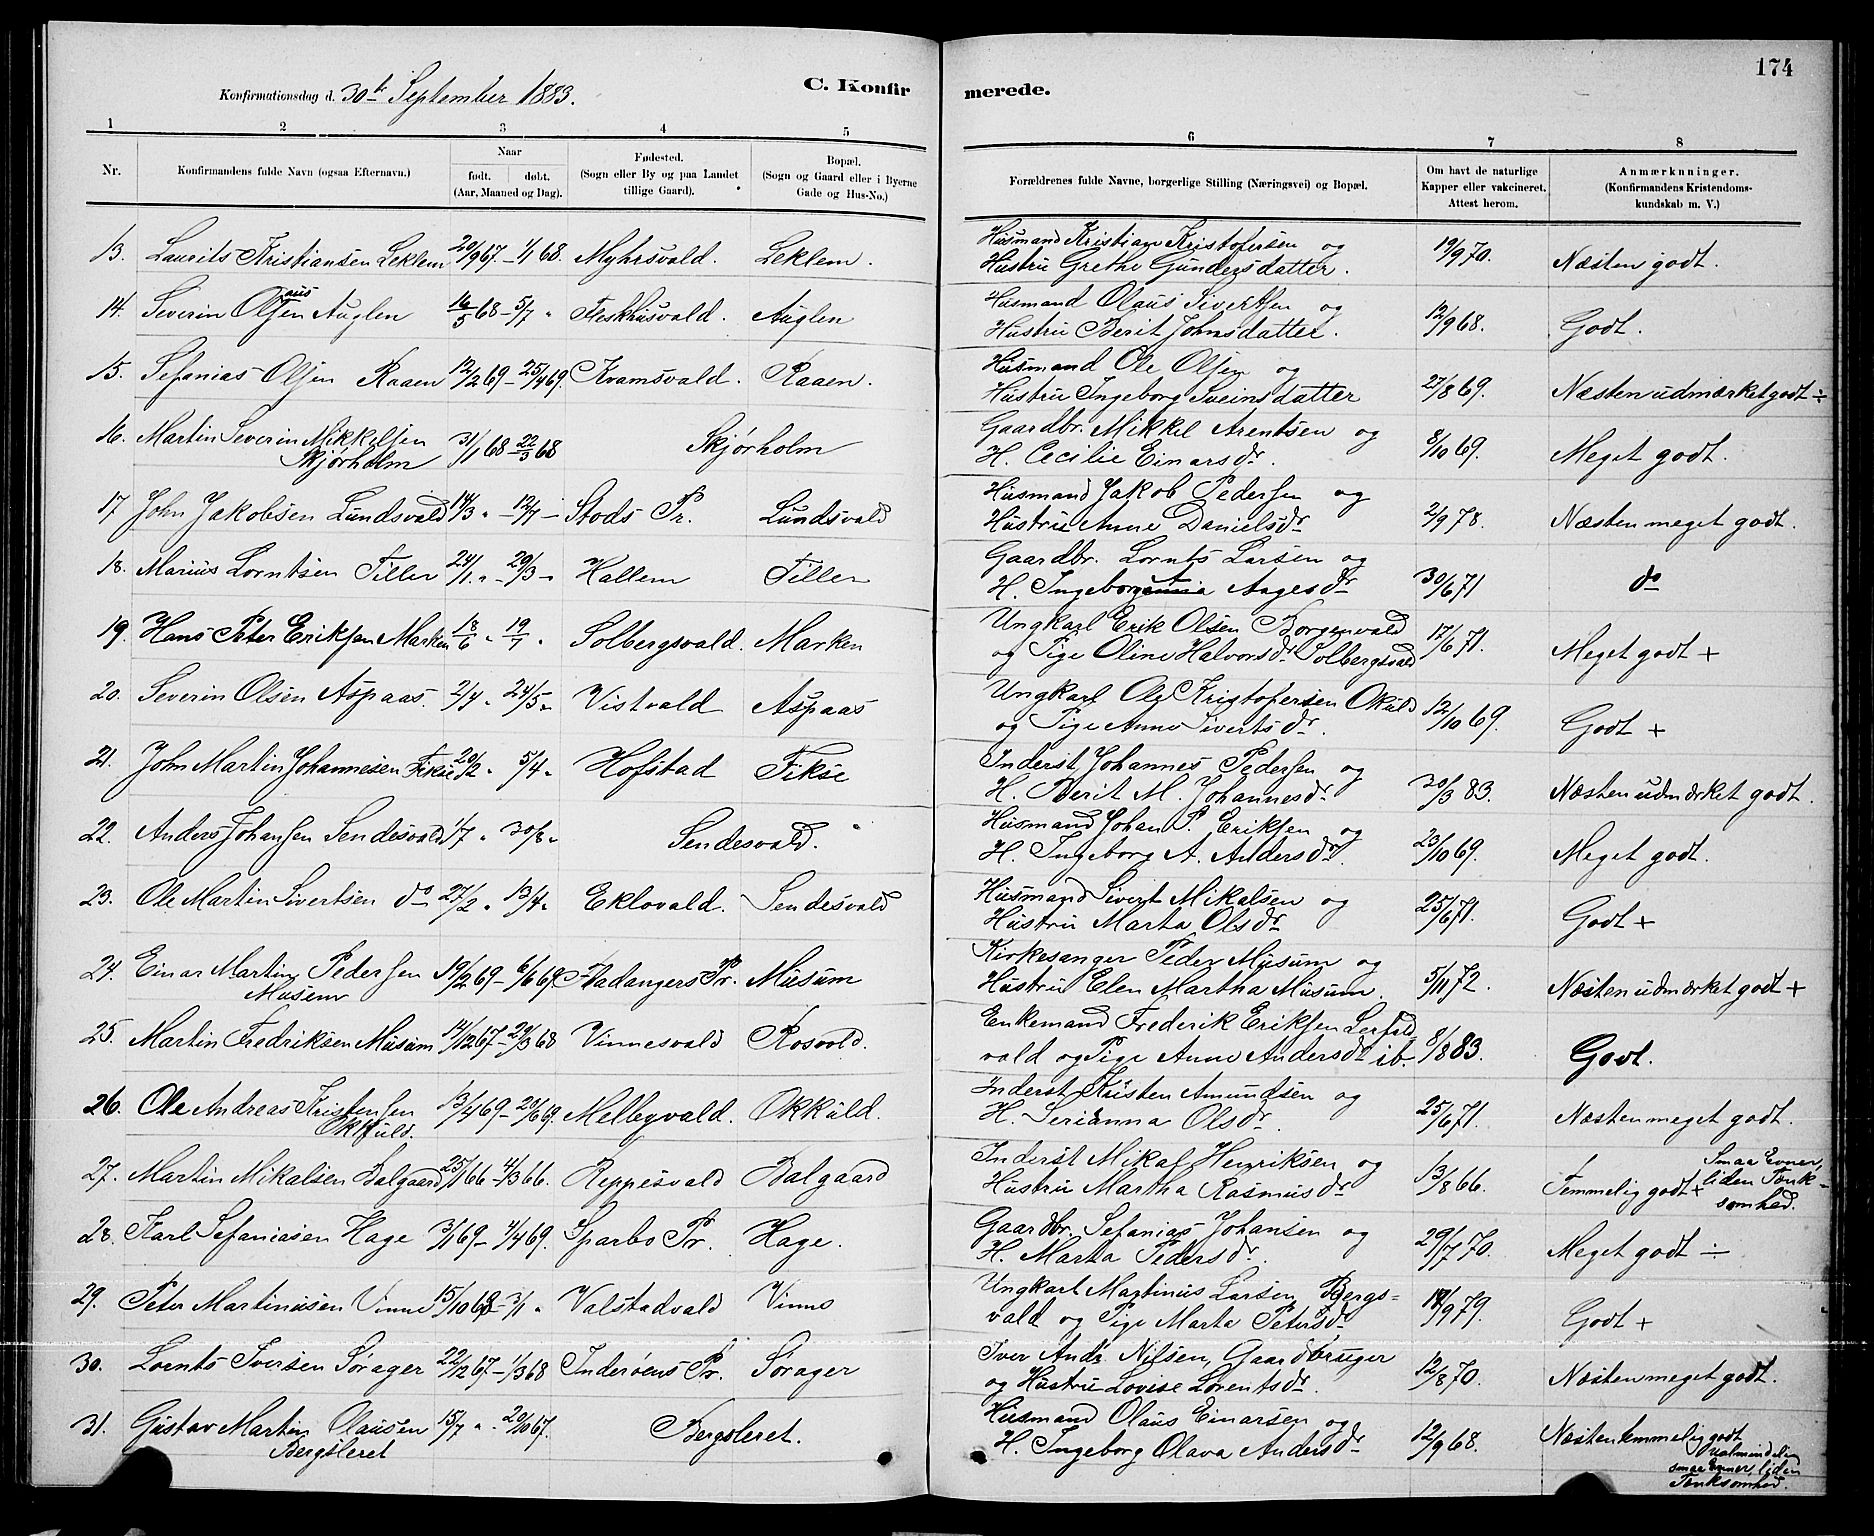 174
Konfirmationsdag d. 30te September 1883.
C. Konfirmerede.
1 2 3 4 5 6 7 8
Nr.
Konfirmandens fulde Navn (ogsaa Efternavn.)
Naar
født. døbt.
(Aar, Maaned og Dag).
Fødested.
(Sogn eller By og paa Landet
tillige Gaard).
Bopæl.
(Sogn og Gaard eller i Byerne
Gade og Hus-No.)
Forældrenes fulde Navne, borgerlige Stilling (Næringsvei) og Bopæl.
Om havt de naturlige
Kapper eller vakcineret.
Attest herom.
Anmærknninger.
(Konfirmandens Kristendoms-
kundskab m. V.)
13. Laurits Kristiansen Leklem 20/9 67 - 1/1 68. Myhrsvald. Leklem. Husmand Kristian Kristofersen og
Hustru Grethe Gundersdatter. 19/9 70. Næsten godt.
14. Severin Olausen Auglen 16/5 68 - 5/7 " Fleskhusvald. Auglen Husmand Olaus Sivertsen og
Hustru Berit Johnsdatter. 12/9 68. Godt.
15. Sefanias Olsen Raaen 12/2 69 - 25/4 69. Kvamsvald. Raaen. Husmand Ole Olsen og
Hustru Ingeborg Sveinsdatter 27/8 69. Næsten udmærket godt ÷
16. Martin Severin Mikkelsen
Skjørholm 31/1 68 22/3 68 Skjørholm Gaardbr. Mikkel Arentsen og
H. Cecilie Einarsdr. 8/10 69. Meget godt.
17 John Jakobsen Lundsvald 14/3 " - 12/7 - Stods Pr. Lundsvald Husmand Jakob Pedersen og
Hustru Anne Danielsdr 2/9 78. Næsten meget godt.
18. Marius Lorntsen Tiller 24/1 " - 29/3 - Hallem Tiller Gaardbr. Lornts Larsen og
H. Ingeborg Aagesdr 30/6 71 do
19. Hans Peter Eriksen Marken 18/6 " 19/7 " Solbergsvald. Marken Ungkarl Erik Olsen Borgenvald
og Pige Oline Halvorsdr Solbergsvald 17/6 71. Meget godt +
20. Severin Olsen Aspaas. 2/4 " 24/5 " Vistvald Aspaas Ungkarl Ole Kristofersen Okuld
og Pige Anne Sivertsdr. 12/10 69. Godt +
21. John Martin Johannesen Fikse 20/2 " 5/4 " Hofstad Fikse Inderst Johannes Pedersen og
H. Berit M. Johannesdr 30/3 83. Næsten udmærket godt.
22. Anders Johansen Sendesvald 1/7 " 30/8 " Sendesvald. Husmand Johan P. Eriksen og
H. Ingeborg A. Andersdr. 23/10 69. Meget godt.
23. Ole Martin Sivertsen do 27/2 " 13/4 " Eklovald. Sendesvald Husmand Sivert Mikalsen og
Hustru Marta Olsdr 25/6 71. Godt +
24. Einar Martin Pedersen
Musum 19/2 69 - 6/6 69. Stadangers Pr. Musum Kirkesanger Peder Musum og
Hustru Elen Martha Musum. 5/11 72. Næsten udmærket godt +
25. Martin Fredriksen Musum 14/12 67 - 29/3 68 Vinnesvald Rosvold. Enkemand Frederik Eriksen Lerfald
vald og Pige Anne Andersdr ib. 8/8 83. Godt.
26. Ole Andreas Kristensen
Okkuld. 13/4 69 - 20/6 69. Melbyvald. Okkuld. Inderst Kristen Amundsen og
H. Serianna Olsdr. 25/6 71. Næsten meget godt.
27. Martin Mikalsen Balgaard 25/1 66 - 4/3 66. Reppesvald Balgaard Inderst Mikal Henriksen og
Hustru Martha Rasmusdr. 13/8 66. Temmelig godt + Smaa Evner,
liden Tænk-
somhed.
28. Karl Sefaniasen Hage 3/1 69 - 4/4 69. Sparbo Pr. Hage. Gaardbr. Sefanias Johansen og
H. Marta Pedersdr. 29/7 70. Meget godt ÷
29. Peter Martinusen Vinne 15/10 68 - 3/1 " Valstadvald Vinne Ungkarl Martinus Larsen Bergs-
vald og Pige Marta Petersdr 18/9 79. Godt +
30. Lornts Iversen Sørager 22/12 67 - 1/3 68 Inderøens Pr. Sørager Iver Andr. Nilsen, Gaardbruger
og Hustru Lovise Lorentsdr. 12/8 70. Næsten meget godt.
31. Gustav Martin Olausen
Bergsleret 15/7 " - 20/10 67. Bergsleret. Husmand Olaus Einarsen og
H. Ingeborg Olava Andersdr 12/9 68. Næsten temmelig godt
ualmindelig
smaa Evner, liden
Tænksomhed.